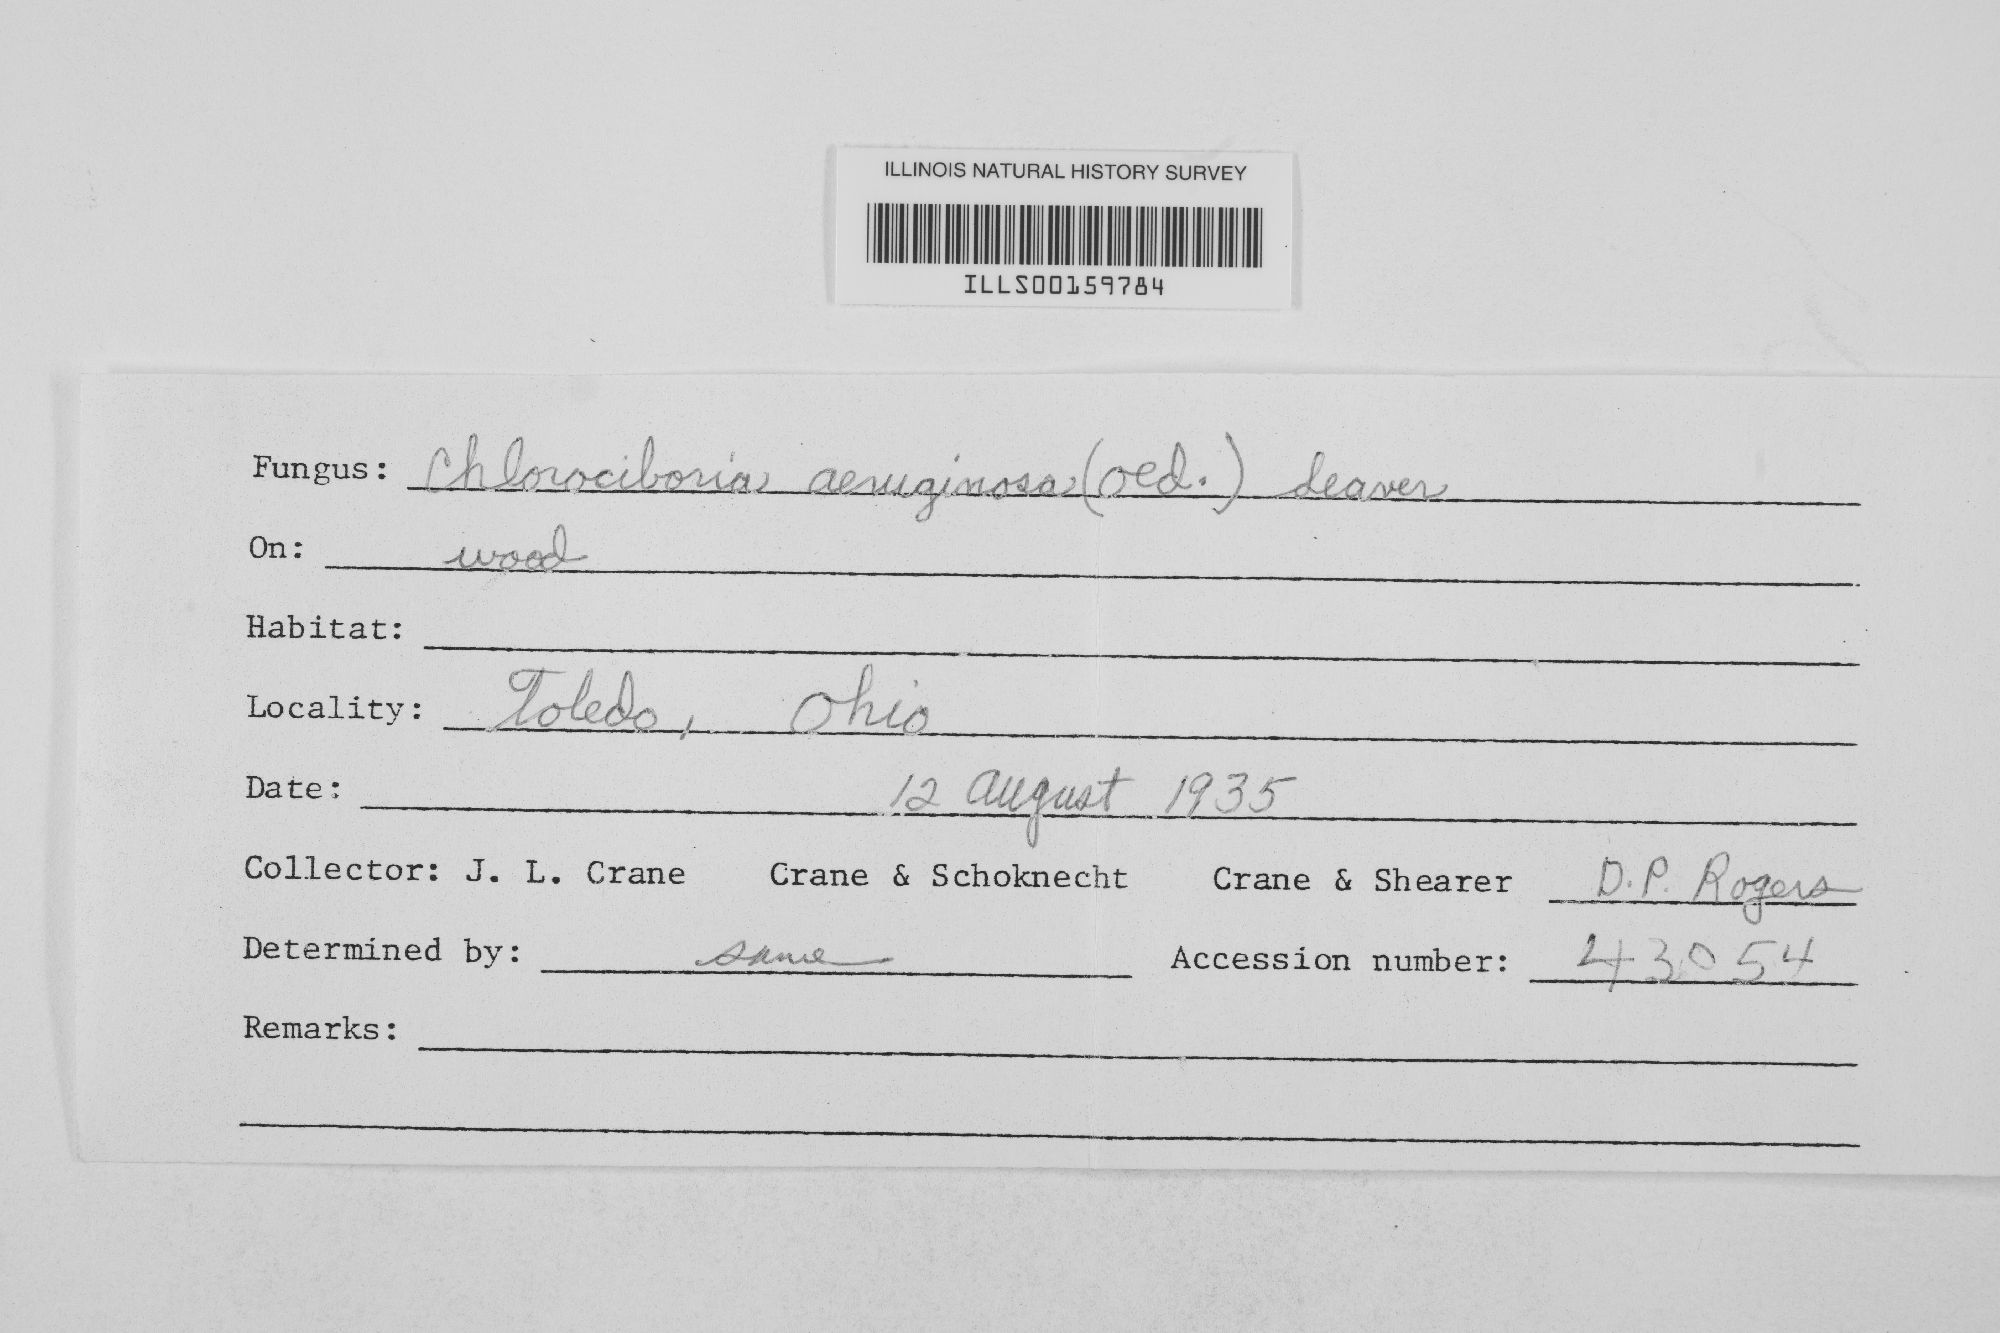 ILLINOIS NATURAL HISTORY SURVEY
ILLS00159784
Fungus: Chlorociboria aeruginosa (Oed.) Seaver
On: wood
Habitat:
Locality: Toledo, Ohio
Date: 12 August 1935
Collector: J. L. Crane Crane & Schoknecht Crane & Shearer D.P. Rogers
Determined by: same Accession number: 43054
Remarks: